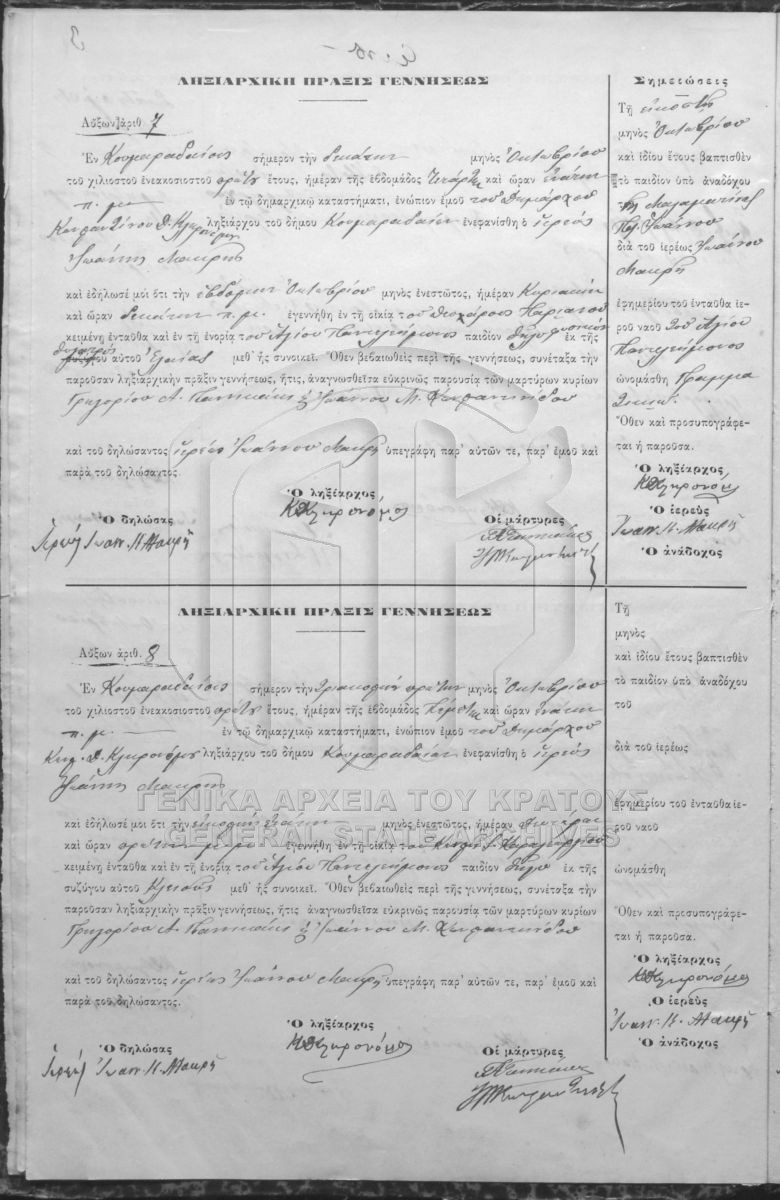 3
ΛΗΞΙΑΡΧΙΚΗ ΠΡΑΞΙΣ ΓΕΝΝΗΣΕΩΣ
Αὔξων ἀριθ 7
Ἐν Κουμαραδαίοις σήμερον τὴν δεκάτην μηνὸς Ὀκτωβρίου
τοῦ χιλιοστοῦ ἐνεακοσιοστοῦ πρώτου ἔτους, ἡμέραν τῆς ἑβδομάδος Τετάρτην καὶ ὥραν ἐνάτην
π. μ. ἐν τῷ δημαρχικῷ καταστήματι, ἐνώπιον ἐμοῦ τοῦ Δημάρχου
Κωνσταντίνου Δ. Κληρονόμου ληξιάρχου τοῦ δήμου Κουμαραδαίων ἐνεφανίσθη ὁ ἱερεὺς
Ἰωάννης Μακρῆς
καὶ ἐδήλωσέ μοι ὅτι τὴν ἑβδόμην Ὀκτωβρίου μηνὸς ἐνεστῶτος, ἡμέραν Κυριακὴν
καὶ ὥραν δεκάτην π. μ. ἐγεννήθη ἐν τῇ οἰκίᾳ τοῦ
κειμένῃ ἐνταῦθα καὶ ἐν τῇ ἐνορίᾳ τοῦ Ἁγίου Παντελεήμονος παιδίον θῆλυ φυσικὸν ἐκ τῆς
θυγατρὸς αὐτοῦ Ἐλαίας μεθ' ἧς συνοικεῖ. Ὅθεν βεβαιωθεὶς περὶ τῆς γεννήσεως, συνέταξα τὴν
παροῦσαν ληξιαρχικὴν πρᾶξιν γεννήσεως, ἥτις, ἀναγνωσθεῖσα εὐκρινῶς παρουσίᾳ τῶν μαρτύρων κυρίων
Γρηγορίου Α. ὁ Ἰωάννου Μ. Κωνσταντινίδου
καὶ τοῦ δηλώσαντος ἱερέως Ἰωάννου Μακρῆ ὑπεγράφη παρ' αὐτῶν τε, παρ' ἐμοῦ καὶ
παρὰ τοῦ δηλώσαντος.
Ὁ ληξίαρχος
ΚΔΚληρονόμος
Ὁ δηλώσας
Ἱερεὺς Ἰωαν. Κ. Μακρῆς
Οἱ μάρτυρες
Σημειώσεις
Τῇ εἰκοστῇ
μηνὸς Ὀκτωβρίου
καὶ ἰδίου ἔτους βαπτισθὲν
τὸ παιδίον ὑπὸ ἀναδόχου
Ἰωάννου
διὰ τοῦ ἱερέως Ἰωάννου
Μακρῆ
ἐφημερίου τοῦ ἐνταῦθα ἱε-
ροῦ ναοῦ τοῦ Ἁγίου
Παντελεήμονος
ὠνομάσθη
Ὅθεν καὶ προσυπογράφε-
ται ἡ παροῦσα.
Ὁ ληξίαρχος
ΚΔΚληρονόμος
Ὁ ἱερεὺς
Ἰωαν. Κ. Μακρῆς
Ὁ ἀνάδοχος
ΛΗΞΙΑΡΧΙΚΗ ΠΡΑΞΙΣ ΓΕΝΝΗΣΕΩΣ
Αὔξων ἀριθ. 8
Ἐν Κουμαραδαίοις σήμερον τὴν τριακοστὴν πρώτην μηνὸς Ὀκτωβρίου
τοῦ χιλιοστοῦ ἐνεακοσιοστοῦ πρώτου ἔτους, ἡμέραν τῆς ἑβδομάδος Πέμπτην καὶ ὥραν ἐνάτην
π. μ. ἐν τῷ δημαρχικῷ καταστήματι, ἐνώπιον ἐμοῦ τοῦ Δημάρχου
Κωνσ. Δ. Κληρονόμου ληξιάρχου τοῦ δήμου Κουμαραδαίων ἐνεφανίσθη ὁ ἱερεὺς
Ἰωάννης Μακρῆς
ΓΕΝΙΚΑ ΑΡΧΕΙΑ ΤΟΥ ΚΡΑΤΟΥΣ
καὶ ἐδήλωσέ μοι ὅτι τὴν εἰκοστὴν ἐνάτην μηνὸς ἐνεστῶτος, ἡμέραν Δευτέραν
GENERAL STATE ARCHIVES
καὶ ὥραν πρώτην ἐγεννήθη ἐν τῇ οἰκίᾳ τοῦ
κειμένῃ ἐνταῦθα καὶ ἐν τῇ ἐνορίᾳ τοῦ Ἁγίου Παντελεήμονος παιδίον θῆλυ ἐκ τῆς
συζύγου αὐτοῦ μεθ' ἧς συνοικεῖ. Ὅθεν βεβαιωθεὶς περὶ τῆς γεννήσεως, συνέταξα τὴν
παροῦσαν ληξιαρχικὴν πρᾶξιν γεννήσεως, ἥτις ἀναγνωσθεῖσα εὐκρινῶς παρουσίᾳ τῶν μαρτύρων κυρίων
Γρηγορίου Α. ὁ Ἰωάννου Μ. Κωνσταντινίδου
καὶ τοῦ δηλώσαντος ἱερέως Ἰωάννου Μακρῆ ὑπεγράφη παρ' αὐτῶν τε, παρ' ἐμοῦ καὶ
παρὰ τοῦ δηλώσαντος.
Ὁ ληξίαρχος
ΚΔΚληρονόμος
Ὁ δηλώσας
Ἱερεὺς Ἰωαν. Κ. Μακρῆς
Οἱ μάρτυρες
Τῇ
μηνὸς
καὶ ἰδίου ἔτους βαπτισθὲν
τὸ παιδίον ὑπὸ ἀναδόχου
τοῦ
διὰ τοῦ ἱερέως
ἐφημερίου τοῦ ἐνταῦθα ἱε-
ροῦ ναοῦ
ὠνομάσθη
Ὅθεν καὶ προσυπογράφε-
ται ἡ παροῦσα.
Ὁ ληξίαρχος
ΚΔΚληρονόμος
Ὁ ἱερεὺς
Ἰωαν. Κ. Μακρῆς
Ὁ ἀνάδοχος